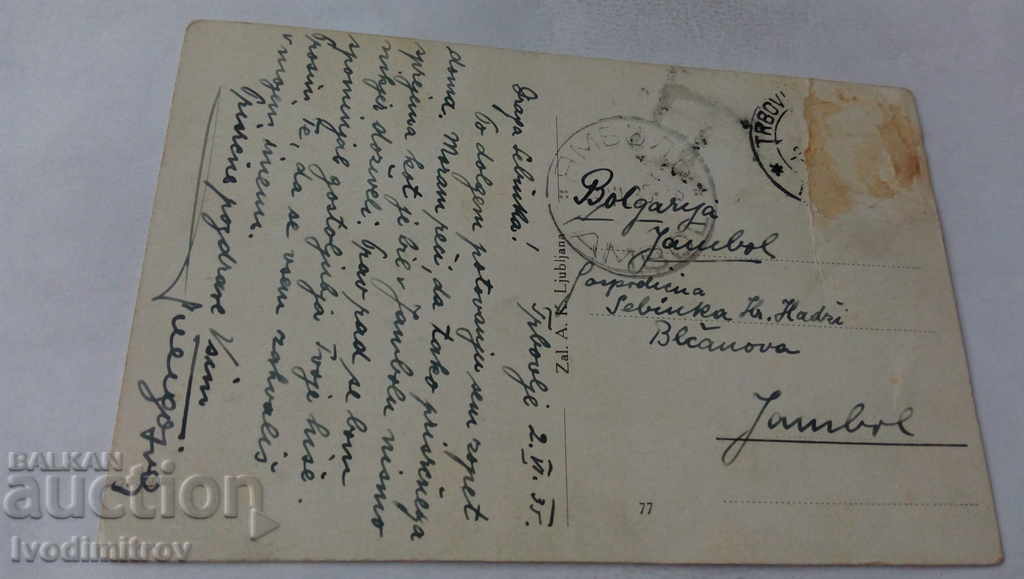 Trbovlje 2. VI. 35.
Draga Sebinka!
Po dolgem potovanju sem zopet
doma. Moram reči, da tako prisrčnega
sprejema kot je bil v Jambolu nismo
nikjer doživeli. Prav rad se bom
spominjal gostoljubja Tvoje hiše.
Prosim te, da se vsem zahvališ
v mojem imenu.
Prisrčne pozdrave Vsem
Zal. A. K. Ljubljana
77
TRBOV
ЯМБОЛ
Bolgarija
Jambol
Gospodična
Sebinka Kr. Hadži
Blčanova
Jambol
BALKAN
auction
Ivodimitrov